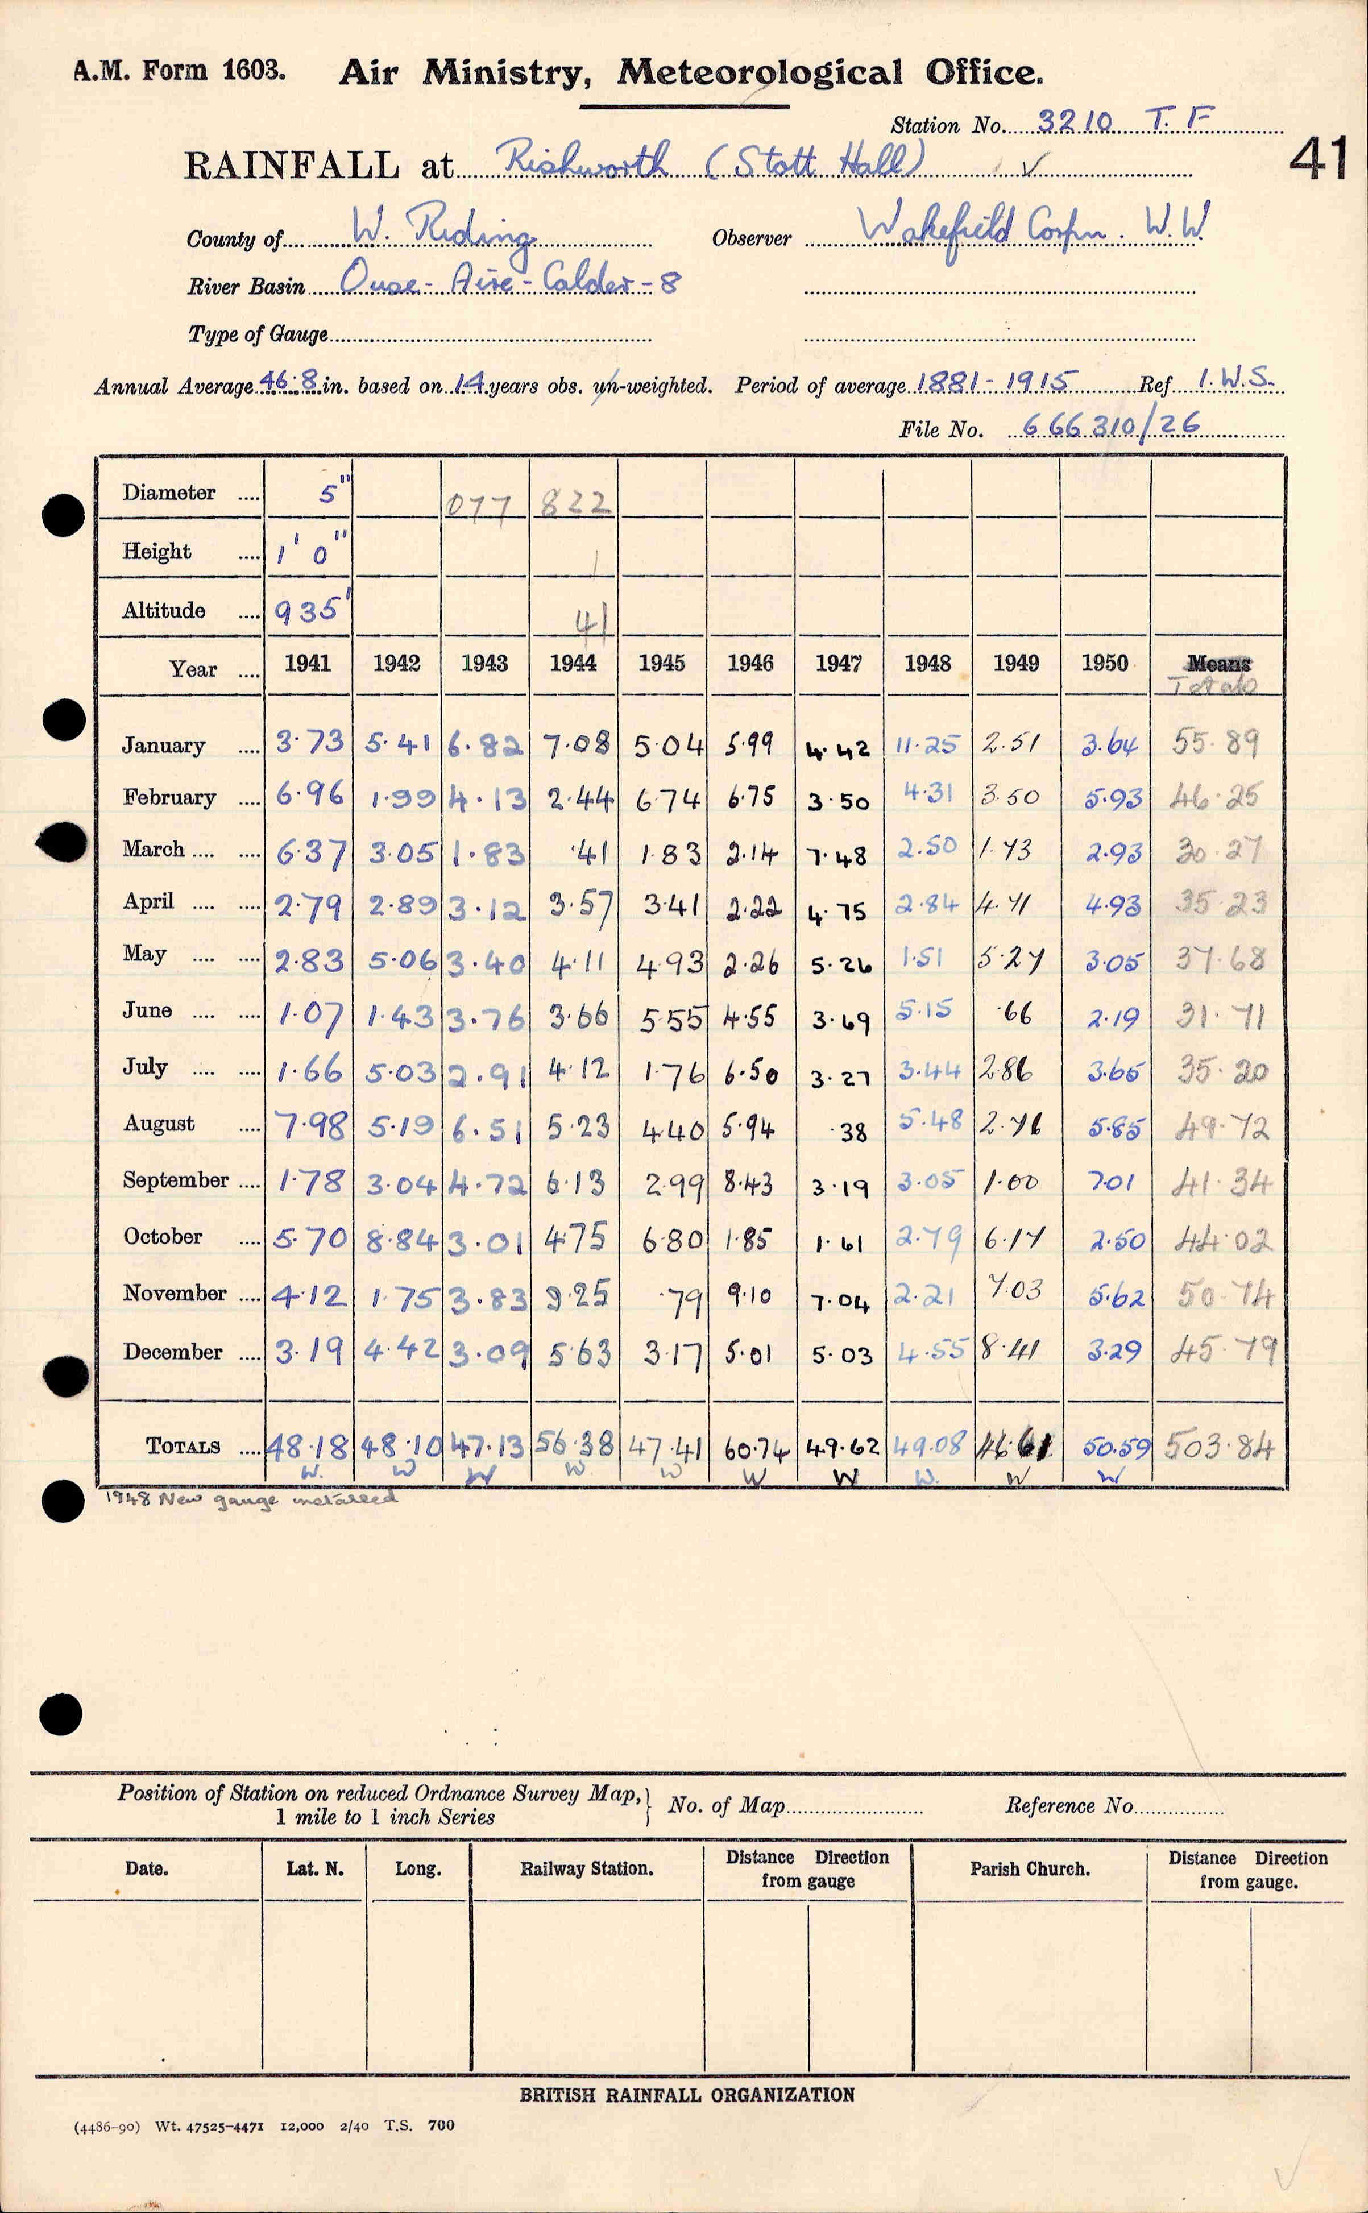 A.M. Form 1603. Air Ministry, Meteorological Office.
Station No. 3210 T.F
41
RAINFALL at Rishworth (Stott Hall) ✓
County of W. Riding Observer Wakefield Corpn. W.W.
River Basin Ouse - Aire - Calder - 8
Type of Gauge
Annual Average 46.8 in. based on 14 years obs. un-weighted. Period of average 1881 - 1915 Ref I.W.S.
File No. 666310/26
Diameter .... 5" 077 822
Height .... 1' 0" 1
Altitude .... 935' 41
Year .... 1941 1942 1943 1944 1945 1946 1947 1948 1949 1950 Means
Totals
January .... 3.73 5.41 6.82 7.08 5.04 5.99 4.42 11.25 2.51 3.64 55.89
February .... 6.96 1.99 4.13 2.44 6.74 6.75 3.50 4.31 3.50 5.93 46.25
March .... .... 6.37 3.05 1.83 .41 1.83 2.14 7.48 2.50 1.73 2.93 30.27
April .... .... 2.79 2.89 3.12 3.57 3.41 2.22 4.75 2.84 4.71 4.93 35.23
May .... .... 2.83 5.06 3.40 4.11 4.93 2.26 5.26 1.51 5.27 3.05 37.68
June .... .... 1.07 1.43 3.76 3.66 5.55 4.55 3.69 5.15 .66 2.19 31.71
July .... .... 1.66 5.03 2.91 4.12 1.76 6.50 3.27 3.44 2.86 3.65 35.20
August .... 7.98 5.19 6.51 5.23 4.40 5.94 .38 5.48 2.76 5.85 49.72
September .... 1.78 3.04 4.72 6.13 2.99 8.43 3.19 3.05 1.00 7.01 41.34
October .... 5.70 8.84 3.01 4.75 6.80 1.85 1.61 2.79 6.17 2.50 44.02
November .... 4.12 1.75 3.83 9.25 .79 9.10 7.04 2.21 7.03 5.62 50.74
December .... 3.19 4.42 3.09 5.63 3.17 5.01 5.03 4.55 8.41 3.29 45.79
TOTALS .... 48.18 48.10 47.13 56.38 47.41 60.74 49.62 49.08 46.61 50.59 503.84
W. W W W. W W W W. W W
1948 New gauge installed
Position of Station on reduced Ordnance Survey Map,} No. of Map Reference No.
1 mile to 1 inch Series
Date. Lat. N. Long. Railway Station. Distance Direction from gauge Parish Church. Distance Direction from gauge.
BRITISH RAINFALL ORGANIZATION
(4486-90) Wt. 47525-4471 12,000 2/40 T.S. 700
✓